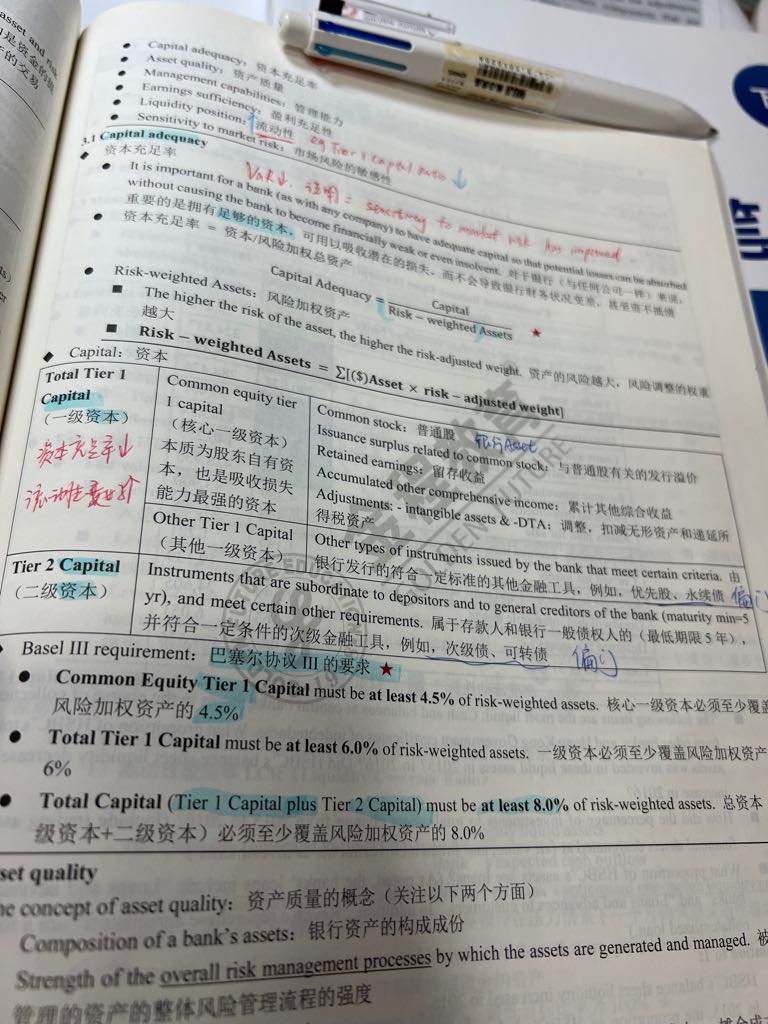 asset and risk
是资金的提
产的交易
Capital adequacy：资本充足率
Asset quality：资产质量
Management capabilities：管理能力
Earnings sufficiency：盈利充足性
Liquidity position：流动性 eg Tier 1 Capital Ratio ↓
Sensitivity to market risk：市场风险的敏感性
3.1 Capital adequacy
资本充足率
VaR↓ 说明 = sensitivity to market risk has improved.
It is important for a bank (as with any company) to have adequate capital so that potential losses can be absorbed
without causing the bank to become financially weak or even insolvent. 对于银行（与任何公司一样）来说，
重要的是拥有足够的资本，可用以吸收潜在的损失，而不会导致银行财务状况变差，甚至资不抵债
资本充足率 = 资本/风险加权总资产
Capital Adequacy = Capital / Risk − weighted Assets ★
Risk-weighted Assets：风险加权资产
The higher the risk of the asset, the higher the risk-adjusted weight. 资产的风险越大，风险调整的权重
越大
Risk − weighted Assets = ∑[($)Asset × risk − adjusted weight]
Capital：资本
Total Tier 1
Capital
（一级资本）
资本充足率↓
Common equity tier
1 capital
（核心一级资本）
本质为股东自有资
本，也是吸收损失
能力最强的资本
Common stock：普通股 银行Asset
Issuance surplus related to common stock：与普通股有关的发行溢价
Retained earnings：留存收益
Accumulated other comprehensive income：累计其他综合收益
Adjustments: - intangible assets & -DTA：调整，扣减无形资产和递延所
得税资产
Other Tier 1 Capital
（其他一级资本）
Other types of instruments issued by the bank that meet certain criteria. 由
银行发行的符合一定标准的其他金融工具，例如，优先股、永续债 偏门
Tier 2 Capital
（二级资本）
Instruments that are subordinate to depositors and to general creditors of the bank (maturity min=5
yr), and meet certain other requirements. 属于存款人和银行一般债权人的（最低期限 5 年），
并符合一定条件的次级金融工具，例如，次级债、可转债 偏门
Basel III requirement：巴塞尔协议 III 的要求 ★
Common Equity Tier 1 Capital must be at least 4.5% of risk-weighted assets. 核心一级资本必须至少覆盖
风险加权资产的 4.5%
Total Tier 1 Capital must be at least 6.0% of risk-weighted assets. 一级资本必须至少覆盖风险加权资产
6%
Total Capital (Tier 1 Capital plus Tier 2 Capital) must be at least 8.0% of risk-weighted assets. 总资本
级资本+二级资本）必须至少覆盖风险加权资产的 8.0%
set quality
he concept of asset quality：资产质量的概念（关注以下两个方面）
Composition of a bank's assets：银行资产的构成成份
Strength of the overall risk management processes by which the assets are generated and managed. 被
管理的资产的整体风险管理流程的强度